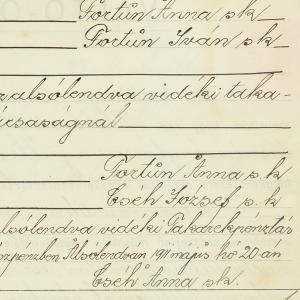 Fortün Anna sk
Fortün Iván sk
alsólendva vidéki taka-
Fortün Anna s.k
Cséh József s.k
alsólendva vidéki Takarekpénztár
Alsólendván 1911 május hó 20-án
Cseh Anna sk.